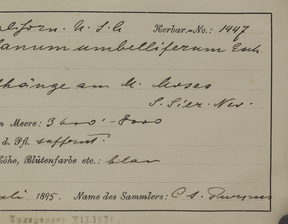 Californ. U.S.A Herbar.-No.: 1447
lanum umbelliferum Esch
hänge am M. Moses
S. Sier. Nev.
n Meere: 3600'-8000
d. Pfl. suffrut.
Höhe, Blütenfarbe etc.: blau
uli 1895. Name des Sammlers: C. A. Purpus